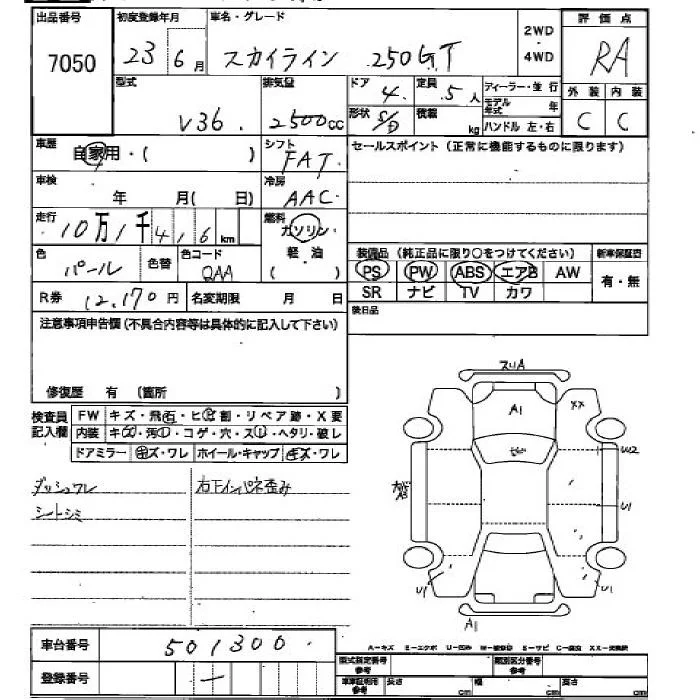 出品番号
7050
初度登録年月
23 6月
車名・グレード
スカイライン 250GT
2WD
・
4WD
評価点
RA
外装 内装
C C
型式
V36
排気量
2500cc
ドア
4
形状
S/D
定員
5人
積載
kg
ディーラー・並行
モデル年式 年
ハンドル 左・右
車歴
自家用・( )
シフト
FAT
セールスポイント(正常に機能するものに限ります)
車検
年 月( 日)
冷房
AAC
走行
10万1千416km
燃料
ガソリン・
軽油
( )
色
パール
色替
色コード
QAA
装備品(純正品に限り○をつけてください)
PS PW ABS エアB AW
SR ナビ TV カワ
新車保証書
有・無
R券 12,170円 名変期限 月 日
後日品
注意事項申告欄(不具合内容等は具体的に記入して下さい)
修復歴 有 (箇所 )
検査員
記入欄
FW キズ・飛石・ヒビ割・リペア跡・X要
内装 キズ・汚レ・コゲ・穴・スレ・ヘタリ・破レ
ドアミラー キズ・ワレ ホイール・キャップ キズ・ワレ
ダッシュワレ
シートシミ
右下インパネ歪み
スリA
A1
XX
W2
U1
U1
U1
A1
車台番号 501300
登録番号 —
A−キズ E−エクボ U−凹み W−補修跡 S−サビ C−腐食 XX−交換済
型式指定番号
参考
類別区分番号
参考
車庫証明用
参考
長さ cm
幅 cm
高さ cm